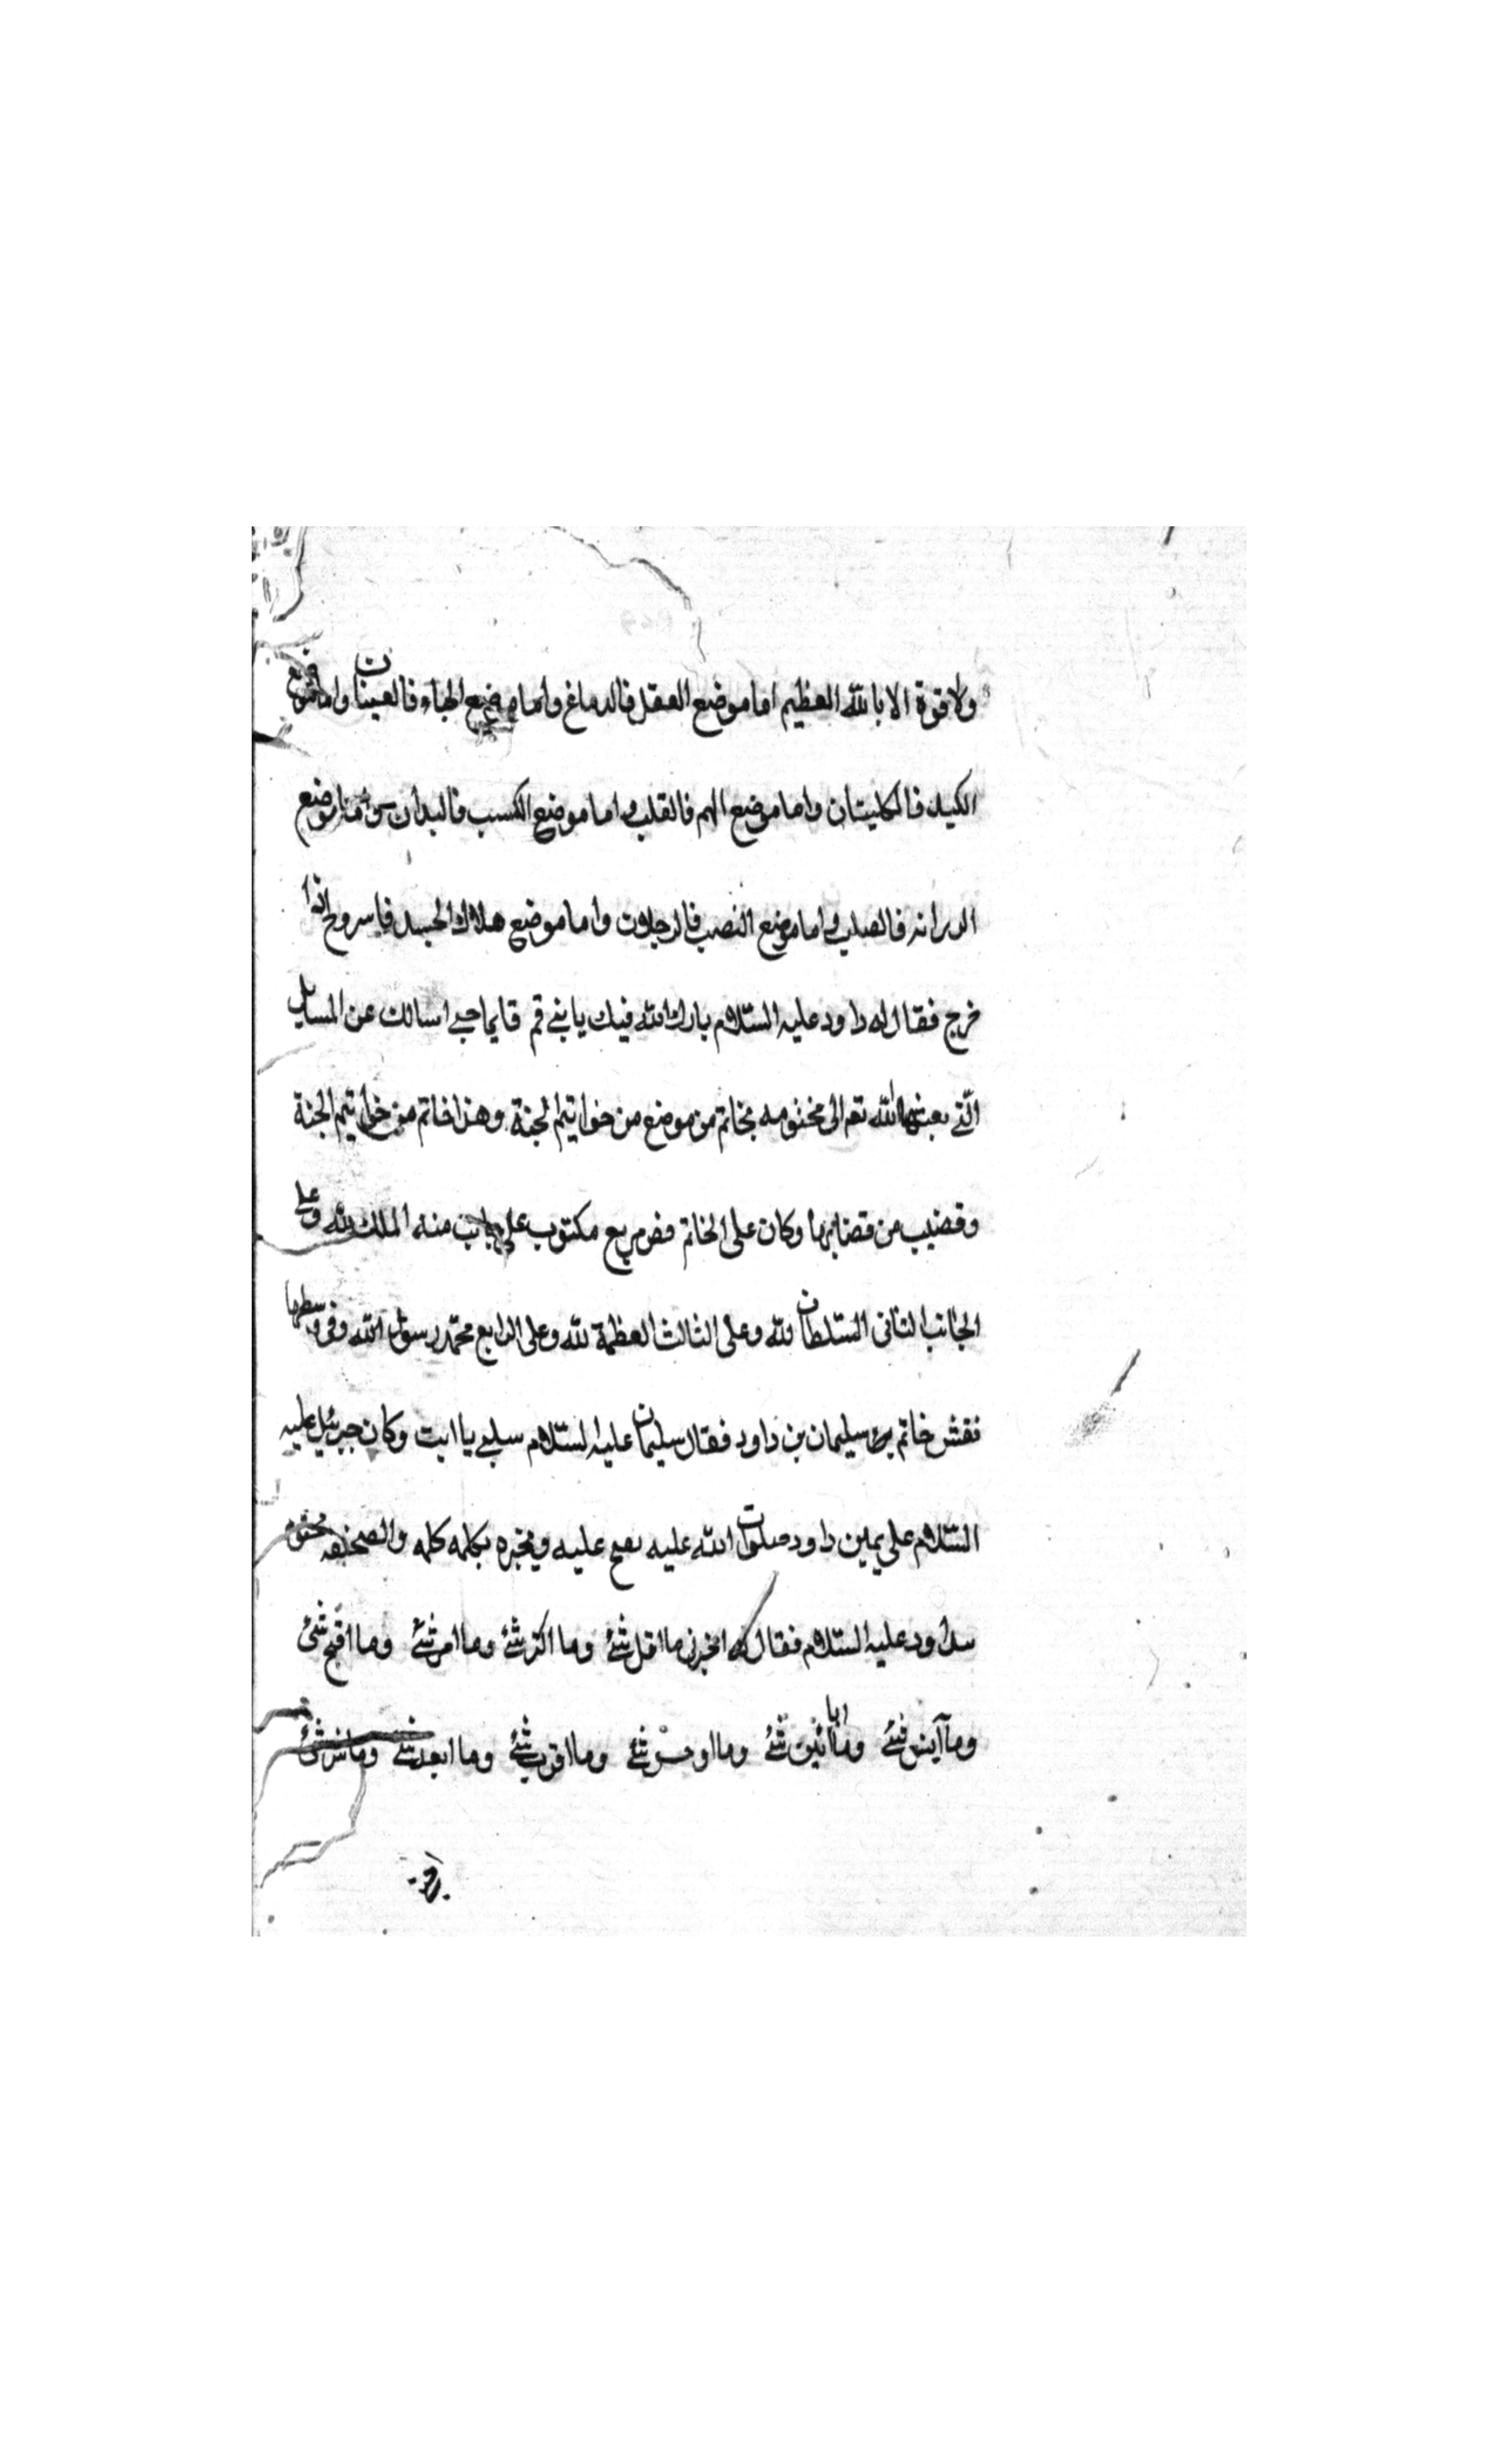 ولا قوة الا بالله العظيم اما موضع العقل فالدماغ واما موضع الحياء فالعينان واما موضع
الكيد فالكليتان واما موضع الهم فالقلب واما موضع الكسب فاليدان واما موضع
فالصلب واما موضع النصب فالرجلان واما موضع هلاك الجسد فا سروح اذا
خرج فقال له داود عليه السلام بارك الله فيك يا بني قم قايما حتى اسالك عن المسايل
التي بعثها الله تعالى مختومه بخاتم من موضع من خواتيم الجنة وهذا خاتم من خواتيم الجنة
وقضيب من قضابها وكان على الخاتم فص مربع مكتوب على جانب منه الملك لله وعلى
الجانب الثانى السلطان لله وعلى الثالث العظمة لله وعلى الرابع محمد رسول الله وفى وسطها
نقش خاتم سليمان بن داود فقال سليمان عليه السلام سلني يا ابت وكان جبرئيل عليه
السلام على يمين داود صلوات الله عليه عليه ويخبره بكلمه كلمه والصحيفه
داود عليه السلام فقال له اخبرنى ما اقل شئ وما اكثر شئ وما امر شئ وما اقبح شئ
وما آنس شئ وما شئ وما اوحش شئ وما اقرب شئ وما ابعد شئ وما شئ